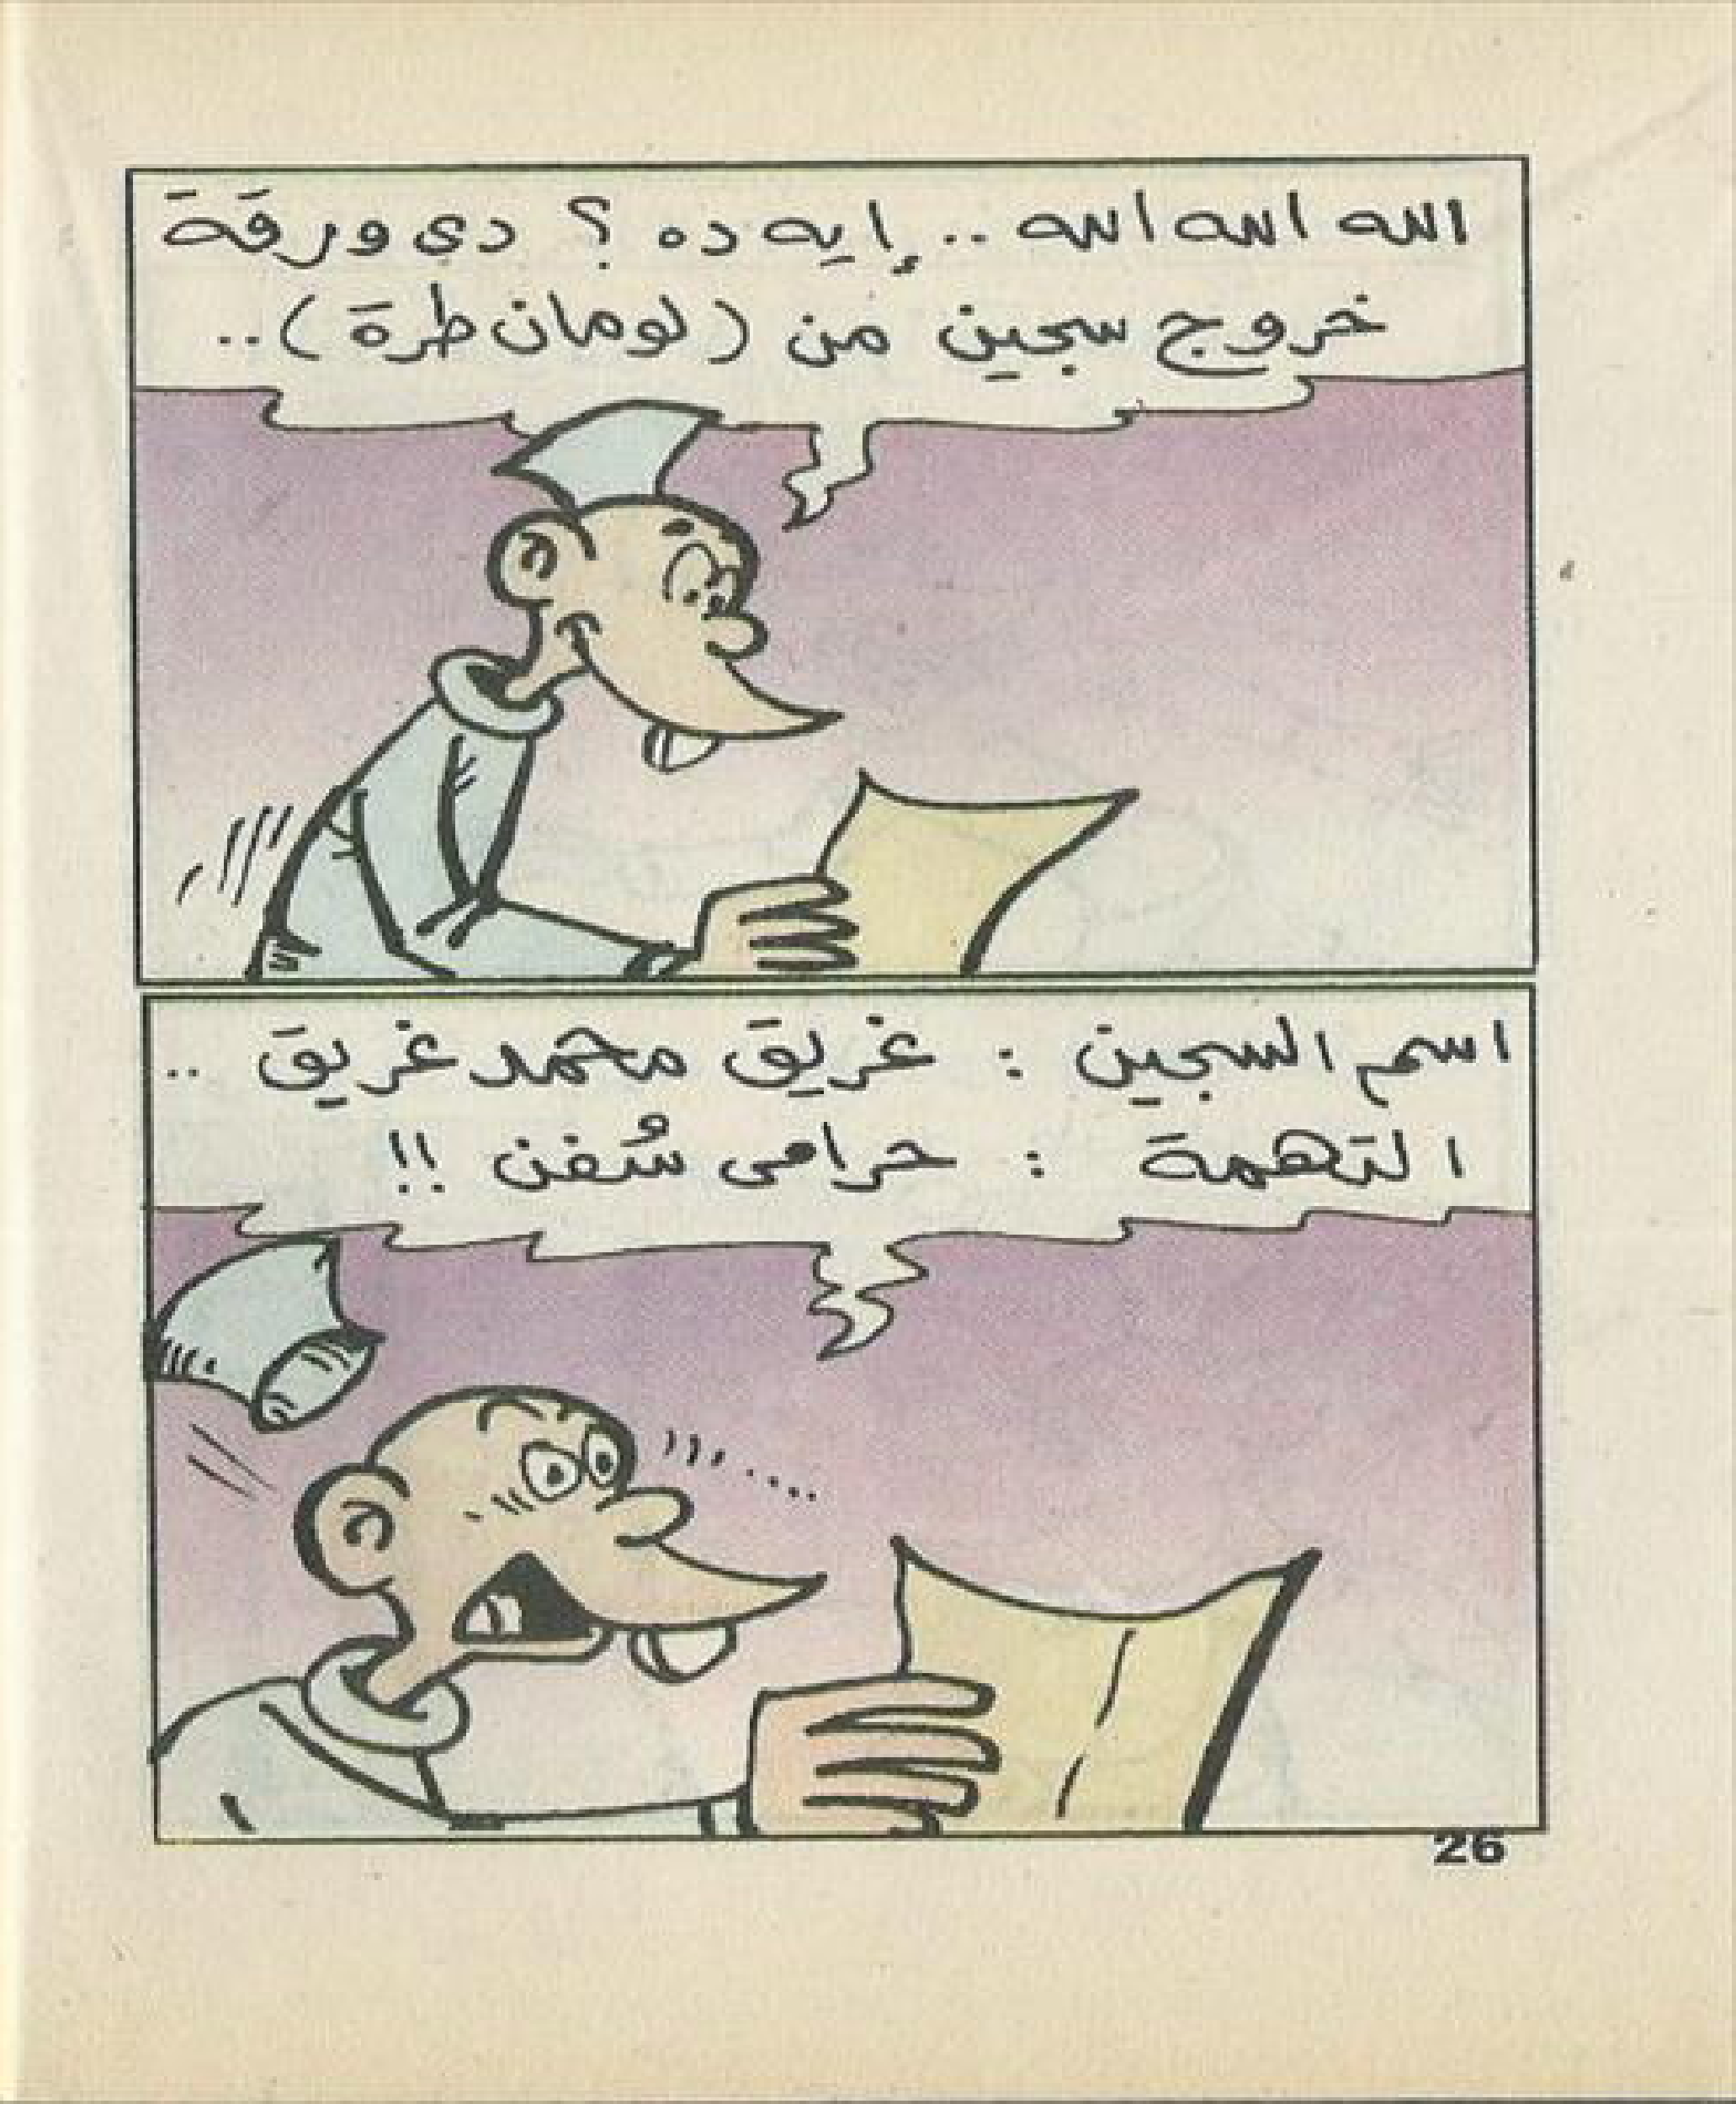 الله الله الله .. إيه ده ؟ دى ورقة
خروج سجين من (لومان طرة) ..
اسم السجين : غريق محمد غريق ..
التهمة : حرامى سُفن !!
26